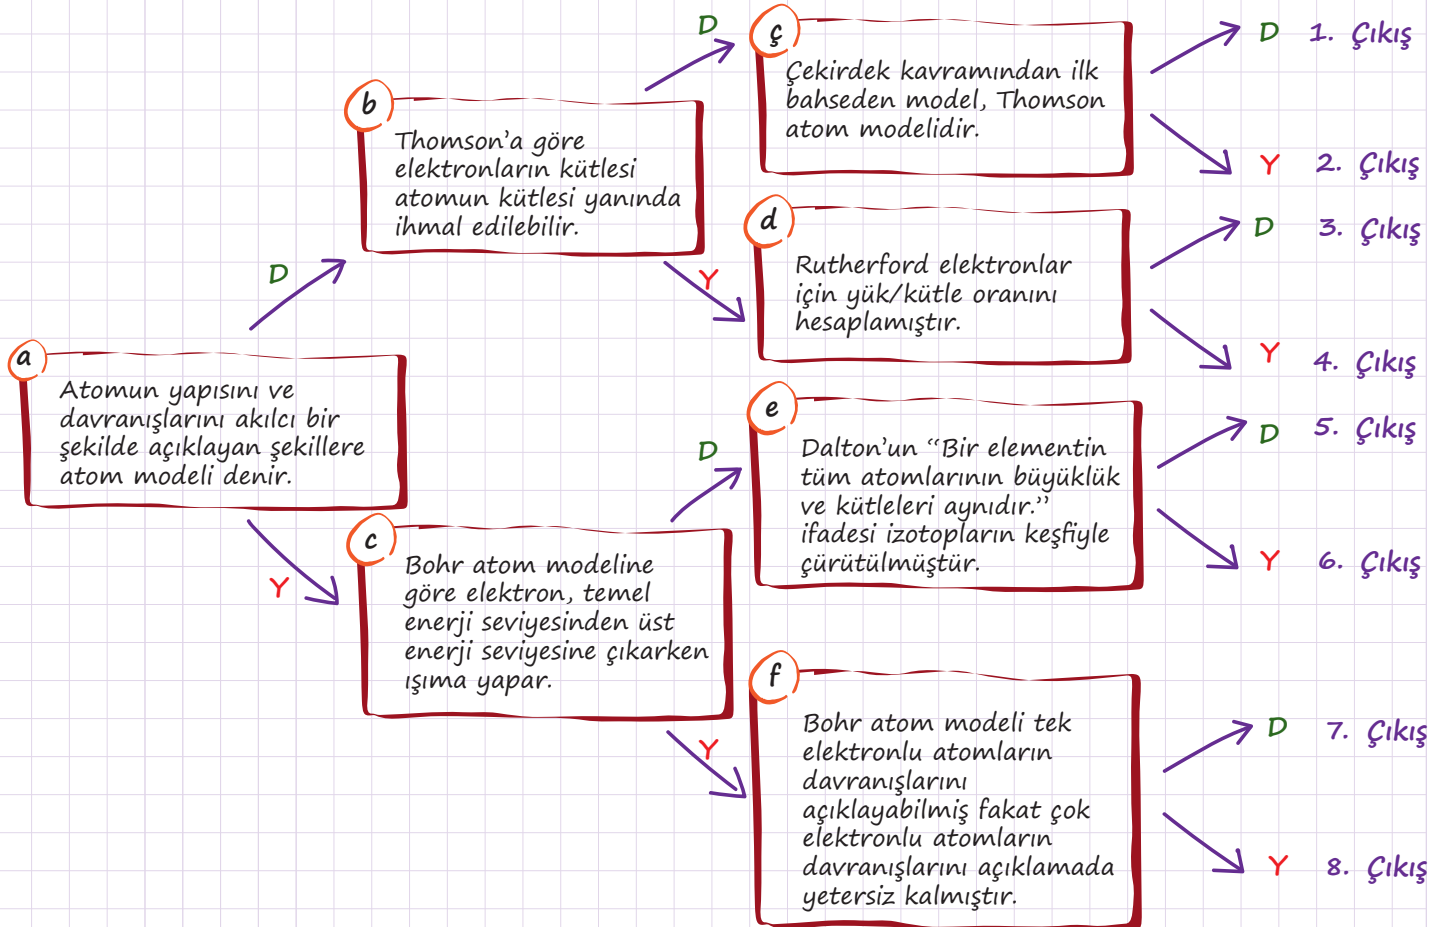 a
Atomun yapısını ve
davranışlarını akılcı bir
şekilde açıklayan şekillere
atom modeli denir.
D
Y
b
Thomson’a göre
elektronların kütlesi
atomun kütlesi yanında
ihmal edilebilir.
D
Y
c
Bohr atom modeline
göre elektron, temel
enerji seviyesinden üst
enerji seviyesine çıkarken
ışıma yapar.
D
Y
ç
Çekirdek kavramından ilk
bahseden model, Thomson
atom modelidir.
D 1. Çıkış
Y 2. Çıkış
d
Rutherford elektronlar
için yük/kütle oranını
hesaplamıştır.
D 3. Çıkış
Y 4. Çıkış
e
Dalton’un “Bir elementin
tüm atomlarının büyüklük
ve kütleleri aynıdır.”
ifadesi izotopların keşfiyle
çürütülmüştür.
D 5. Çıkış
Y 6. Çıkış
f
Bohr atom modeli tek
elektronlu atomların
davranışlarını
açıklayabilmiş fakat çok
elektronlu atomların
davranışlarını açıklamada
yetersiz kalmıştır.
D 7. Çıkış
Y 8. Çıkış